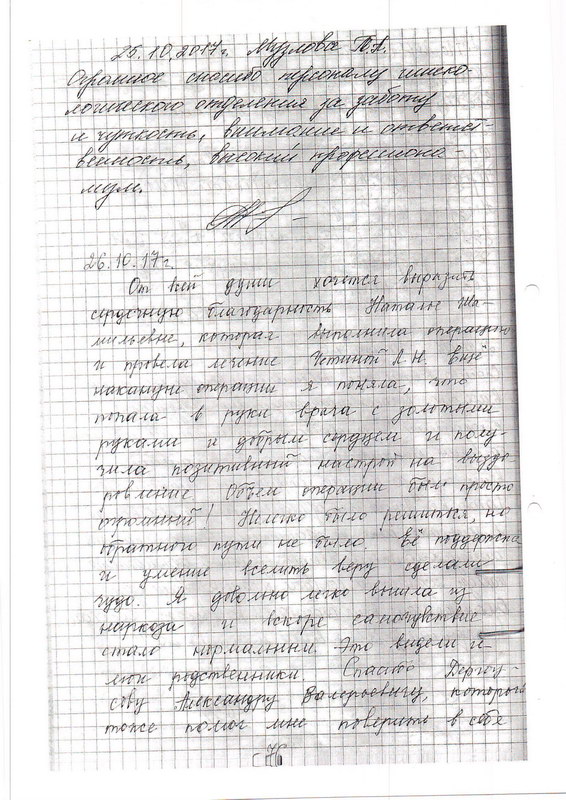 25.10.2017г. Музлова Т.А.
Огромное спасибо персоналу гинеко-
логического отделения за заботу
и чуткость, внимание и ответст-
венность, высокий профессиона-
лизм.
26.10.17г.
От всей души хочется выразить
сердечную благодарность Наталье Ша-
мильевне, которая выполнила операцию
и провела лечение Устиной Л.Н. Ещё
накануне операции я поняла, что
попала в руки врача с золотыми
руками и добрым сердцем и полу-
чила позитивный настрой на выздо
ровление. Объем операции был просто
огромный! Нелегко было решиться, но
обратного пути не было. Её поддержка
и умение вселить веру сделали
чудо. Я довольно легко вышла из
наркоза и вскоре самочувствие
стало нормальным. Это видели и
мои родственники. Спасибо
Александру Валерьевичу, который
тоже помог мне поверить в себя